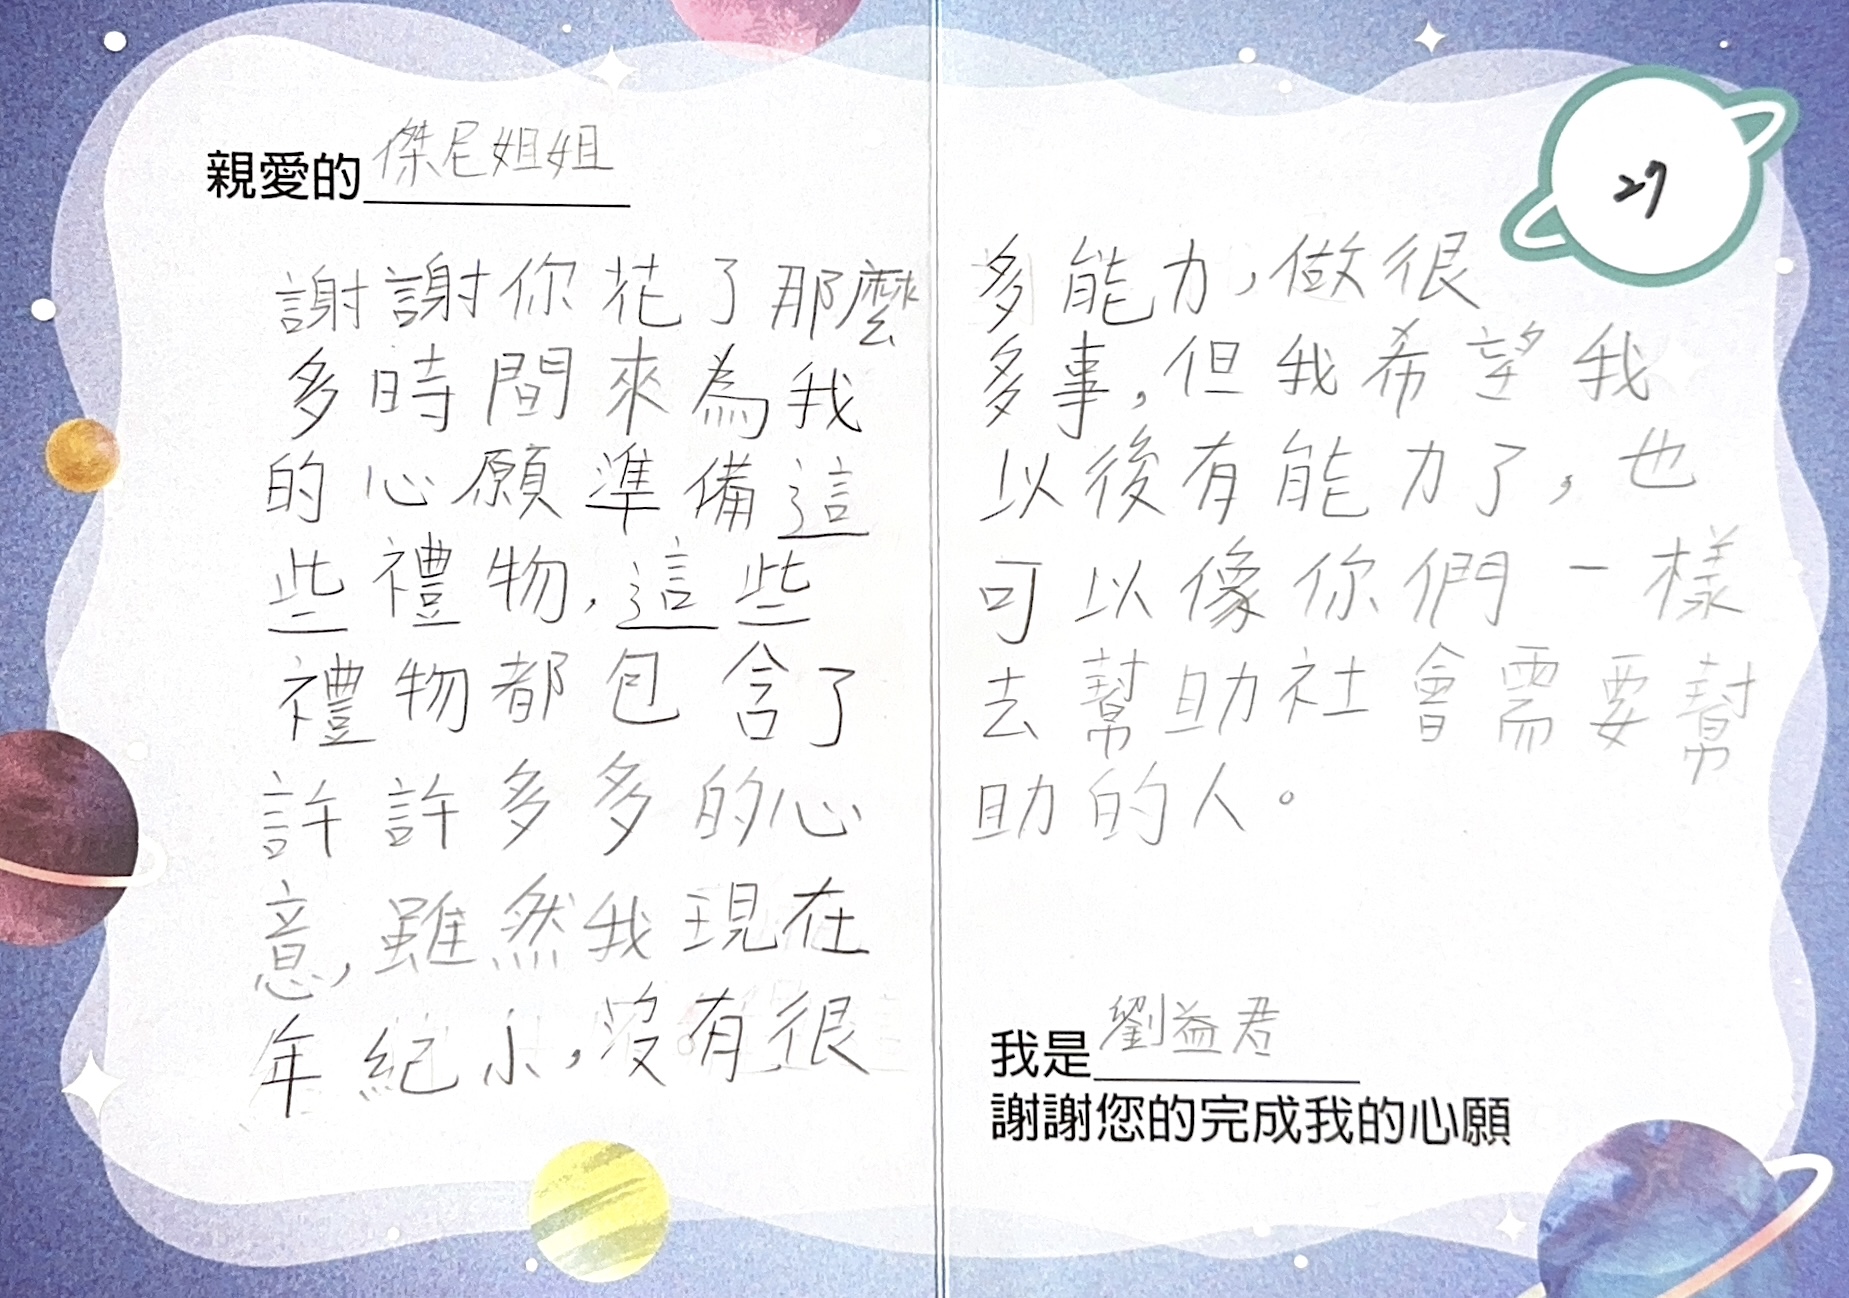 親愛的傑尼姐姐
謝謝你花了那麼
多時間來為我
的心願準備這
些禮物，這些
禮物都包含了
許許多多的心
意，雖然我現在
年紀小，沒有很
27
多能力，做很
多事，但我希望我
以後有能力了，也
可以像你們一樣
去幫助社會需要幫
助的人。
我是劉益君
謝謝您的完成我的心願